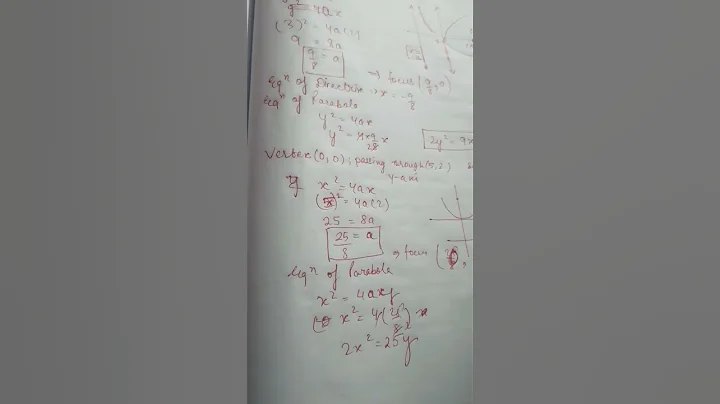 y² = 4ax
(3)² = 4a(2)
9 = 8a
9/8 = a
⇒ focus (9/8, 0)
Eqⁿ of Directrix → x = -9/8
Eqⁿ of Parabola
y² = 4ax
y² = 4×9/28 x
2y² = 9x
Vertex (0,0), passing through (5,2)
y-axis
x² = 4ax
(5)² = 4a(2)
25 = 8a
25/8 = a
⇒ focus
Eqⁿ of Parabola
x² = 4ay
x² = 4(25/8)
2x² = 25y